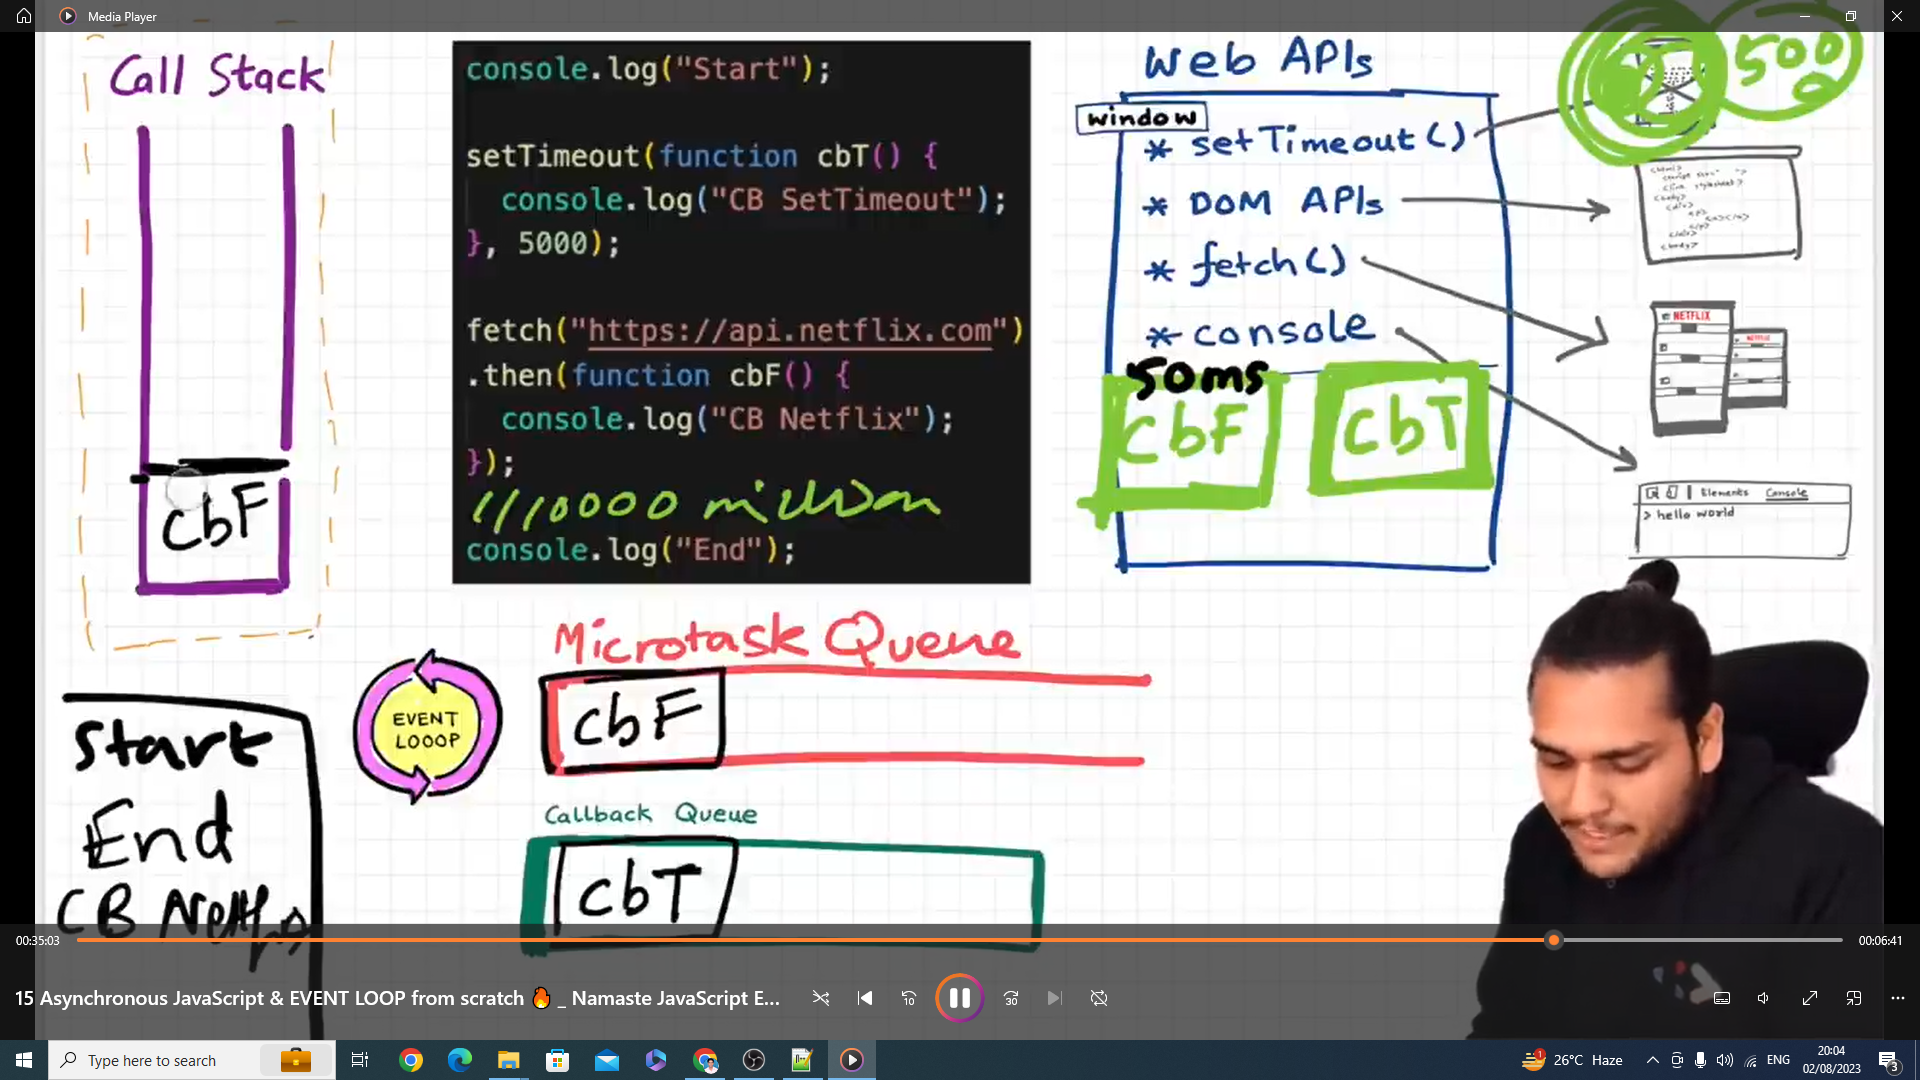 Media Player
Call Stack
cbF
console.log("Start");
setTimeout(function cbT() {
console.log("CB SetTimeout");
}, 5000);
fetch("https://api.netflix.com")
.then(function cbF() {
console.log("CB Netflix");
});
///10000 million
console.log("End");
Web APIs
window
* setTimeout()
* DOM APIs
* fetch()
* console
50ms
cbF
cbT
500
NETFLIX
NETFLIX
Elements Console
> hello world
Microtask Queue
cbF
EVENT
LOOOP
Callback Queue
cbT
Start
End
CB
00:35:03
00:06:41
15 Asynchronous JavaScript & EVENT LOOP from scratch 🔥 _ Namaste JavaScript E...
10
30
Type here to search
1
26°C Haze
ENG
20:04
02/08/2023
3